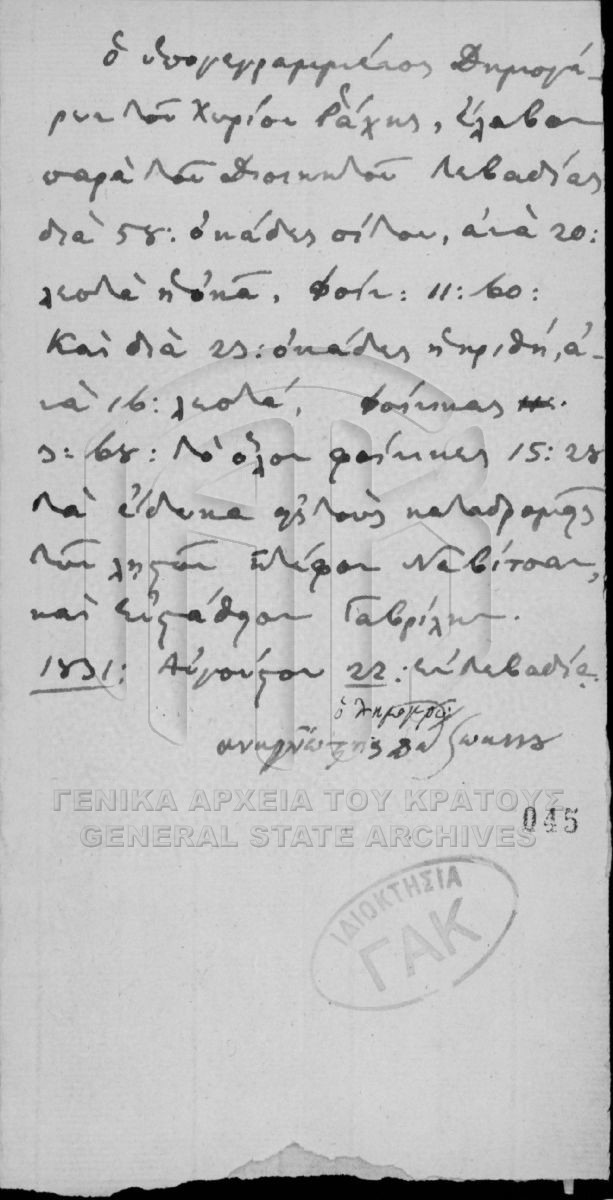 ὁ ὑπογεγραμμένος Δημογέ-
ρων τοῦ Χωρίου Ῥάχης, ἔλαβον
παρὰ τοῦ Διοικητοῦ Λεβαδίας
διὰ 58: ὀκάδες σίτου, ἀνὰ 20:
λεπτὰ ἡ ὀκᾶ, Φοίν: 11: 60:
Καὶ διὰ 23: ὀκάδες κριθή, ἀ-
νὰ 16: λεπτά, φοίνικας
3: 68: τὸ ὅλον φοίνικες 15: 28
τὰ ἔδωκα εἰς τοὺς καταδρομεῖς
τῶν ληστῶν Στέφου Νεβίτσαν,
καὶ Εὐσταθίου Γαβρίλην.
1831: Αὐγούστου 22: ἐν Λεβαδίᾳ.
ὁ Δημογέρος
αναγνώστης
ΓΕΝΙΚΑ ΑΡΧΕΙΑ ΤΟΥ ΚΡΑΤΟΥΣ
GENERAL STATE ARCHIVES
045
ΙΔΙΟΚΤΗΣΙΑ
ΓΑΚ